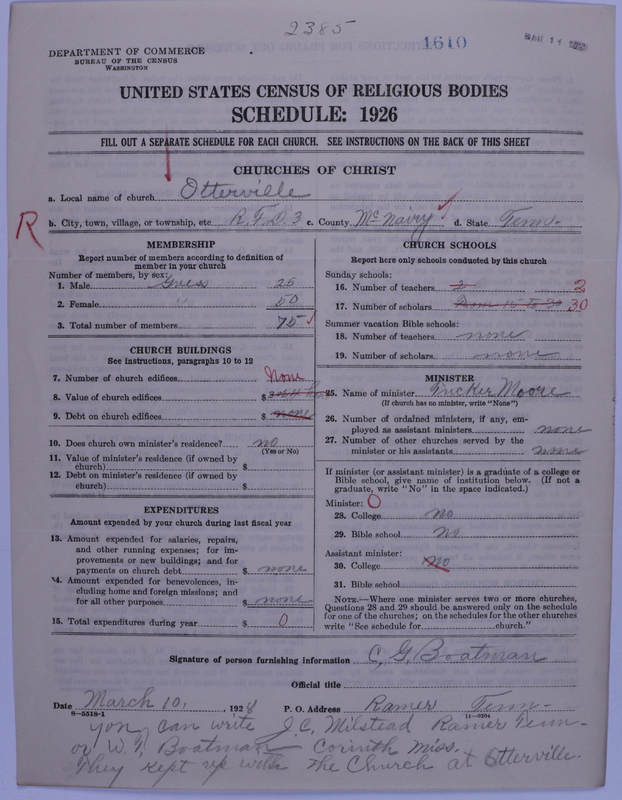 2385
1610
DEPARTMENT OF COMMERCE
BUREAU OF THE CENSUS
WASHINGTON
UNITED STATES CENSUS OF RELIGIOUS BODIES
SCHEDULE: 1926
FILL OUT A SEPARATE SCHEDULE FOR EACH CHURCH. SEE INSTRUCTIONS ON THE BACK OF THIS SHEET
CHURCHES OF CHRIST
a. Local name of church Otterville
R
b. City, town, village, or township, etc R.F.D. 3 c. County McNairy d. State Tenn.
MEMBERSHIP
Report number of members according to definition of
member in your church
Number of members, by sex:
1. Male Guess 25
2. Female " 50
3. Total number of members 75
CHURCH BUILDINGS
See instructions, paragraphs 10 to 12
7. Number of church edifices None
8. Value of church edifices $
9. Debt on church edifices $ none
10. Does church own minister's residence? no
(Yes or No)
11. Value of minister's residence (if owned by
church) $
12. Debt on minister's residence (if owned by
church) $
EXPENDITURES
Amount expended by your church during last fiscal year
13. Amount expended for salaries, repairs,
and other running expenses; for im-
provements or new buildings; and for
payments on church debt $ none
14. Amount expended for benevolences, in-
cluding home and foreign missions; and
for all other purposes $ none
15. Total expenditures during year $ 0
CHURCH SCHOOLS
Report here only schools conducted by this church
Sunday schools:
16. Number of teachers 2 2
17. Number of scholars From 15 to 30 30
Summer vacation Bible schools:
18. Number of teachers none
19. Number of scholars none
MINISTER
25. Name of minister Tucker Moore
(If church has no minister, write "None")
26. Number of ordained ministers, if any, em-
ployed as assistant ministers none
27. Number of other churches served by the
minister or his assistants none
If minister (or assistant minister) is a graduate of a college or
Bible school, give name of institution below. (If not a
graduate, write "No" in the space indicated.)
Minister: O
28. College No
29. Bible school No
Assistant minister:
30. College No
31. Bible school
NOTE.—Where one minister serves two or more churches,
Questions 28 and 29 should be answered only on the schedule
for one of the churches; on the schedules for the other churches
write "See schedule for church."
Signature of person furnishing information C. G. Boatman
Official title
Date March 10, 1928 P. O. Address Ramer Tenn.
8—5518-1 11—9204
you can write J. C. Milstead Ramer Tenn.
or W. T. Boatman Corinth Miss.
They kept up with the Church at Otterville.